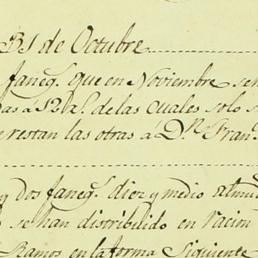 31 de Octubre
faneg.s que en Noviembre se
das a 12 r.s de las cuales solo s
e restan las otras a D.n Fran.
y dos faneg.s diez y medio almu
e se han distribuido en racion
Ramos en la forma Siguiente